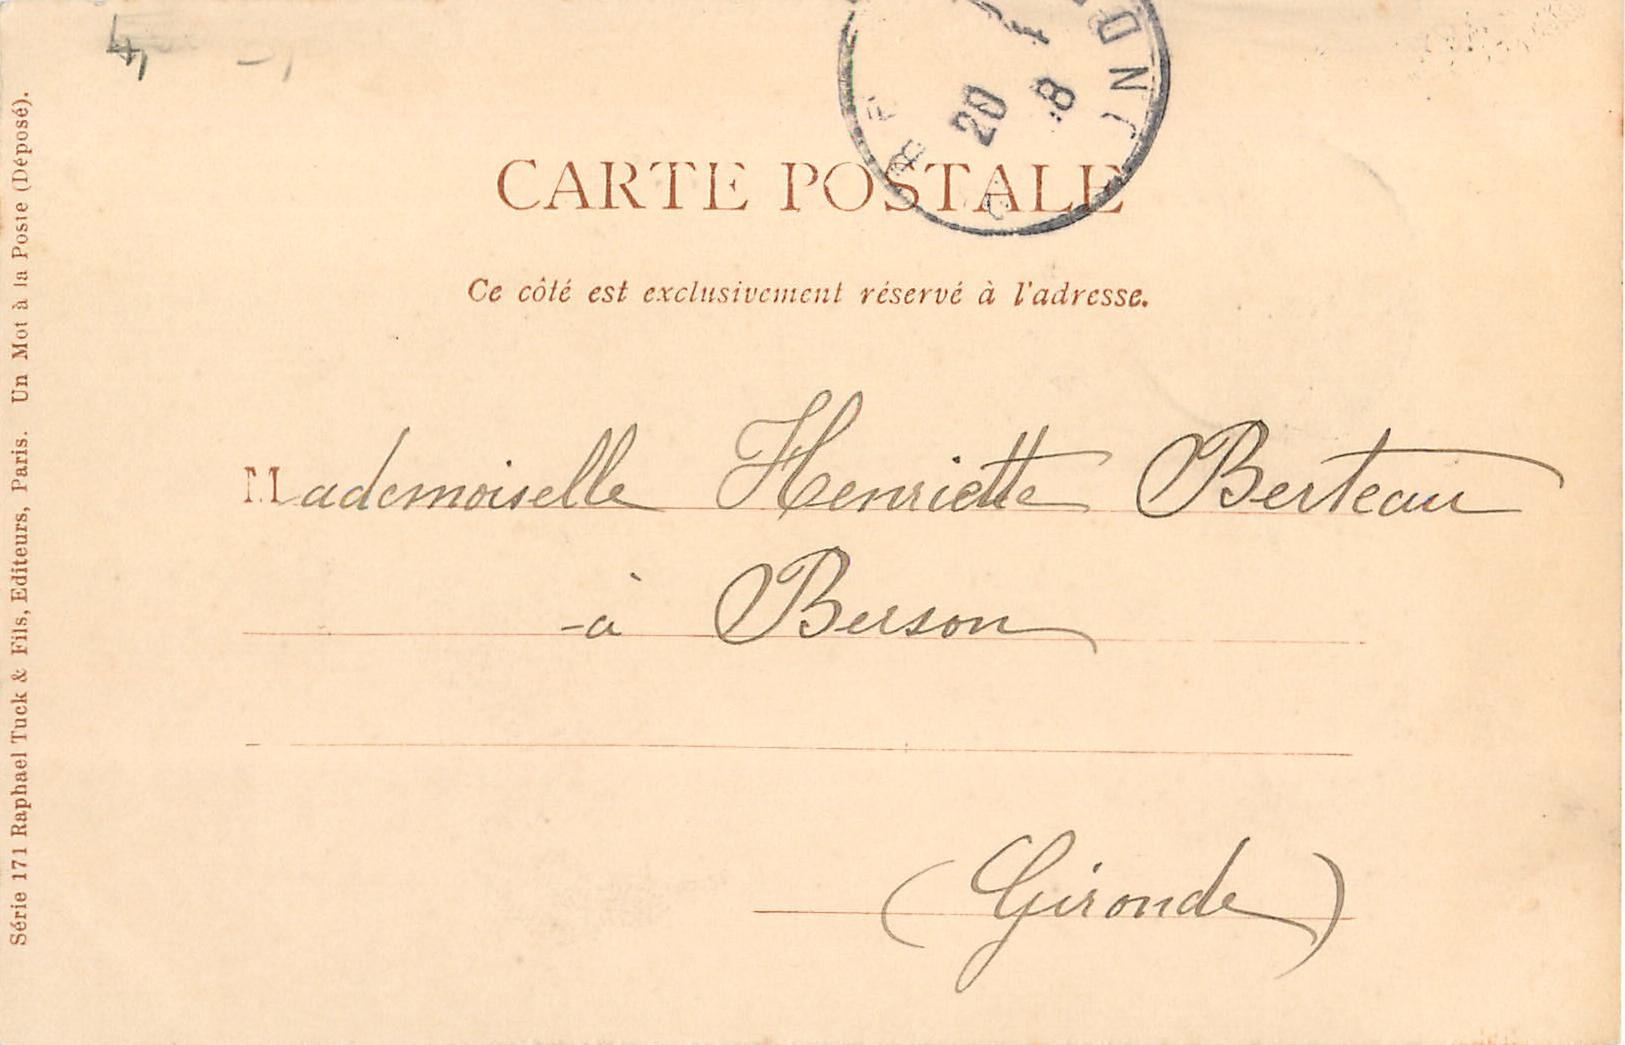 4,
20
8
CARTE POSTALE
Ce côté est exclusivement réservé à l'adresse.
Mademoiselle Henriette Berteau
-à Berson
(Gironde)
Série 171 Raphael Tuck & Fils, Editeurs, Paris. Un Mot à la Poste (Déposé).